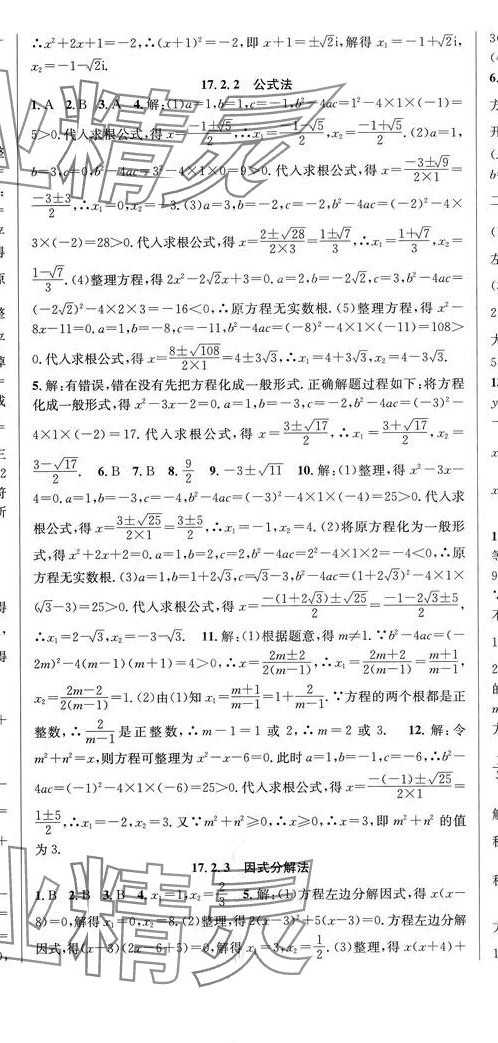 ∴x²+2x+1=-2,∴(x+1)²=-2,即x+1=±√2i,∴x₁=-1+√2i,
x₂=-1-√2i.
17.2.2 公式法
1.A 2.B 3.A 4.解:(1)a=1,b=1,c=-1,b²-4ac=1²-4×1×(-1)=
5>0.代入求根公式,得x=(-1±√5)/2,∴x₁=(-1-√5)/2,x₂=(-1+√5)/2.(2)a=1,
b=3,c=0,b²-4ac=3²-4×1×0=9>0.代入求根公式,得x=(-3±√9)/(2×1)=
(-3±3)/2,∴x₁=0,x₂=-3.(3)a=3,b=-2,c=-2,b²-4ac=(-2)²-4×
3×(-2)=28>0.代入求根公式,得x=(2±√28)/(2×3)=(1±√7)/3,∴x₁=(1+√7)/3,x₂=
(1-√7)/3.(4)整理方程,得2x²-2√2x+3=0.a=2,b=-2√2,c=3,b²-4ac=
(-2√2)²-4×2×3=-16<0,∴原方程无实数根.(5)整理方程,得x²-
8x-11=0.a=1,b=-8,c=-11,b²-4ac=(-8)²-4×1×(-11)=108>
0.代入求根公式,得x=(8±√108)/(2×1)=4±3√3,∴x₁=4+3√3,x₂=4-3√3.
5.解:有错误,错在没有先把方程化成一般形式.正确解题过程如下:将方程
化成一般形式,得x²-3x-2=0.a=1,b=-3,c=-2,b²-4ac=(-3)²-
4×1×(-2)=17.代入求根公式,得x=(3±√17)/2,∴x₁=(3+√17)/2,x₂=
(3-√17)/2. 6.B 7.B 8.9/2 9.-3±√11 10.解:(1)整理,得x²-3x-
4=0.a=1,b=-3,c=-4,b²-4ac=(-3)²-4×1×(-4)=25>0.代入求
根公式,得x=(3±√25)/(2×1)=(3±5)/2,∴x₁=-1,x₂=4.(2)将原方程化为一般形
式,得x²+2x+2=0.a=1,b=2,c=2,b²-4ac=2²-4×1×2=-4<0,∴原
方程无实数根.(3)a=1,b=1+2√3,c=√3-3,b²-4ac=(1+2√3)²-4×1×
(√3-3)=25>0.代入求根公式,得x=(-(1+2√3)±√25)/2=(-1-2√3±5)/2,
∴x₁=2-√3,x₂=-3-√3. 11.解:(1)根据题意,得m≠1.∵b²-4ac=(-
2m)²-4(m-1)(m+1)=4>0,∴x=(2m±2)/(2(m-1)),∴x₁=(2m+2)/(2(m-1))=(m+1)/(m-1),
x₂=(2m-2)/(2(m-1))=1.(2)由(1)知x₁=(m+1)/(m-1)=1+2/(m-1).∵方程的两个根都是正
整数,∴2/(m-1)是正整数,∴m-1=1或2,∴m=2或3. 12.解:令
m²+n²=x,则方程可整理为x²-x-6=0.此时a=1,b=-1,c=-6,∴b²-
4ac=(-1)²-4×1×(-6)=25>0.代入求根公式,得x=(-(-1)±√25)/(2×1)=
(1±5)/2,∴x₁=-2,x₂=3.又∵m²+n²≥0,∴x≥0,∴x=3,即m²+n²的值
为3.
17.2.3 因式分解法
1.B 2.B 3.B 4.x₁=1,x₂=2/3 5.解:(1)方程左边分解因式,得x(x-
8)=0,解得x₁=0,x₂=8.(2)整理,得2(x-3)²+5(x-3)=0.方程左边分解
因式,得(x-3)(2x-6+5)=0,解得x₁=3,x₂=1/2.(3)整理,得x(x+4)+